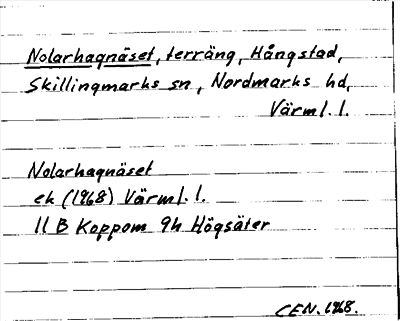 Nolarhagnäset, terräng, Hångstad,
Skillingmarks sn, Nordmarks hd,
Värml. l.
Nolarhagnäset
ek (1968) Värml. l.
11 B Koppom 9h Högsäter
CEN. 1968.